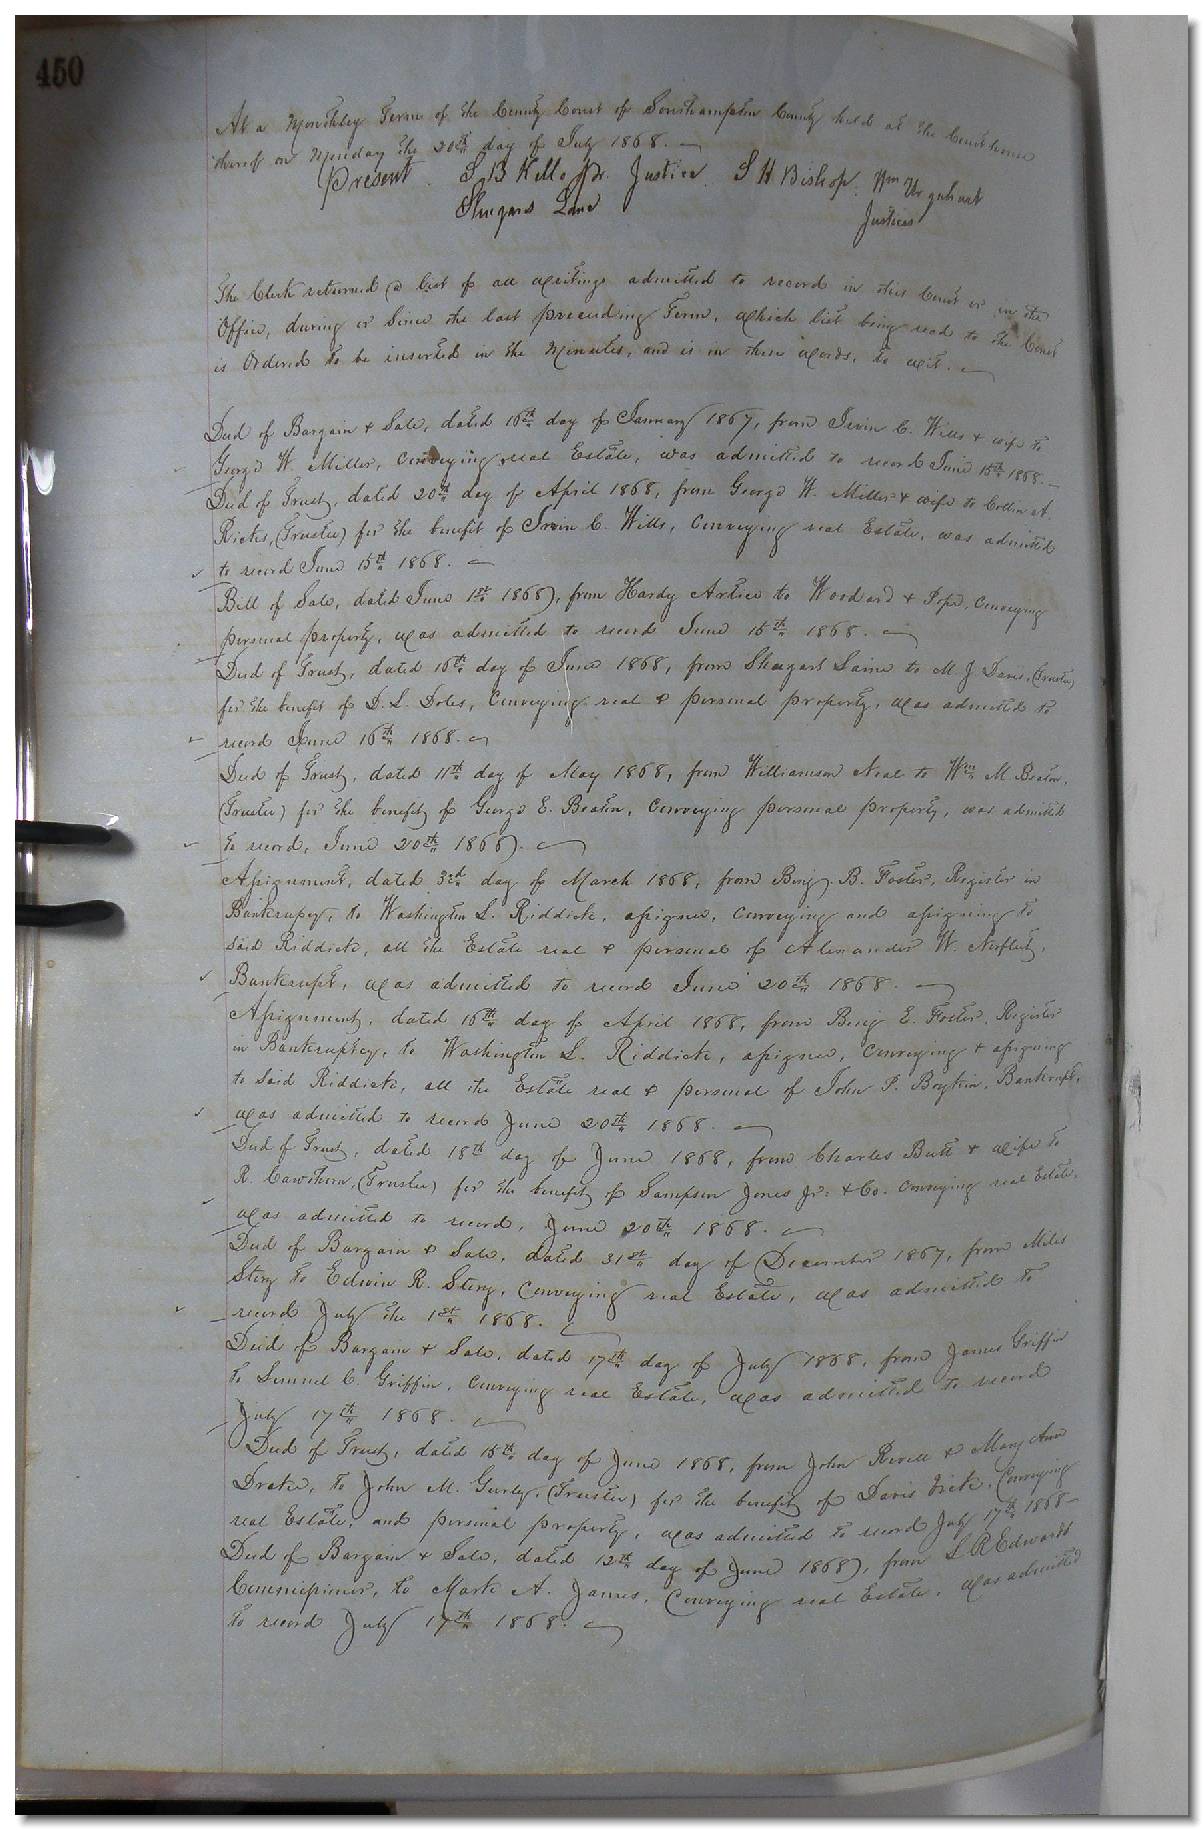 450
At a Monthly Term of the County Court of Southampton County held at the Courthouse
thereof on Monday the 20th day of July 1868.
Present S B Kello Pr. Justice. S H Bishop. Wm Urquhart
Lane Justices
The Clerk returned a list of all writings admitted to record in this Court or in the
Office, during or Since the last preceeding Term, which list being read to the Court
is Ordered to be inserted in the Minutes, and is in these words, to wit.
Deed of Bargain & Sale, dated 16th day of January 1867, from Irvin C. Wills & wife to
George W. Miller, Conveying real Estate, was admitted to record June 15th 1868.
Deed of Trust, dated 20th day of April 1868, from George W. Miller & wife to
Ricks, (Trustee) for the benefit of Irvin C. Wills, Conveying real Estate, was admitted
to record June 15th 1868.
Bill of Sale, dated June 1st 1868, from Hardy Artice to Woodard & Pope, Conveying
personal property, was admitted to record June 15th 1868.
Deed of Trust, dated 16th day of June 1868, from Shugart Laine to M J Davis, (Trustee)
for the benefit of D. L. Doles, Conveying real & personal property, was admitted to
record June 16th 1868.
Deed of Trust, dated 11th day of May 1868, from Williamson Neal to Wm M Beaton,
(Trustee) for the benefit of George E. Beaton, Conveying personal property, was admitted
to record, June 20th 1868.
Assignment, dated 3rd day of March 1868, from Benj. B. Foster, Register in
Bankrupcy, to Washington L. Riddick, assignee, Conveying and assigning to
said Riddick, all the Estate real & personal of Alexander W. Norfleet,
Bankrupt, was admitted to record June 20th 1868.
Assignment, dated 16th day of April 1868, from Benj E. Foster, Register
in Bankruptcy, to Washington L. Riddick, assignee, Conveying & assigning
to Said Riddick, all the Estate real & personal of John P. Boykin, Bankrupt,
was admitted to record June 20th 1868.
Deed of Trust, dated 18th day of June 1868, from Charles Butt & wife to
R. Cawthorn, (Trustee) for the benefit of Sampson Jones Jr. & Co. Conveying real Estate,
was admitted to record, June 20th 1868.
Deed of Bargain & Sale, dated 31st day of December 1867, from Miles
Story to Edwin R. Story, Conveying real Estate, was admitted to
record July the 1st 1868.
Deed of Bargain & Sale, dated 17th day of July 1868, from James Griffin
to Lemuel C. Griffin, Conveying real Estate, was admitted to record
July 17th 1868.
Deed of Trust, dated 15th day of June 1868, from John Revell & Mary Ann
Drake, to John M. Gurley, (Trustee) for the benefit of Davis Frick, Conveying
real Estate, and personal property, was admitted to record July 17th 1868
Deed of Bargain & Sale, dated 12th day of June 1868, from L R Edwards
Commissioner, to Mark A. James, Conveying real Estate, was admitted
to record July 17th 1868.